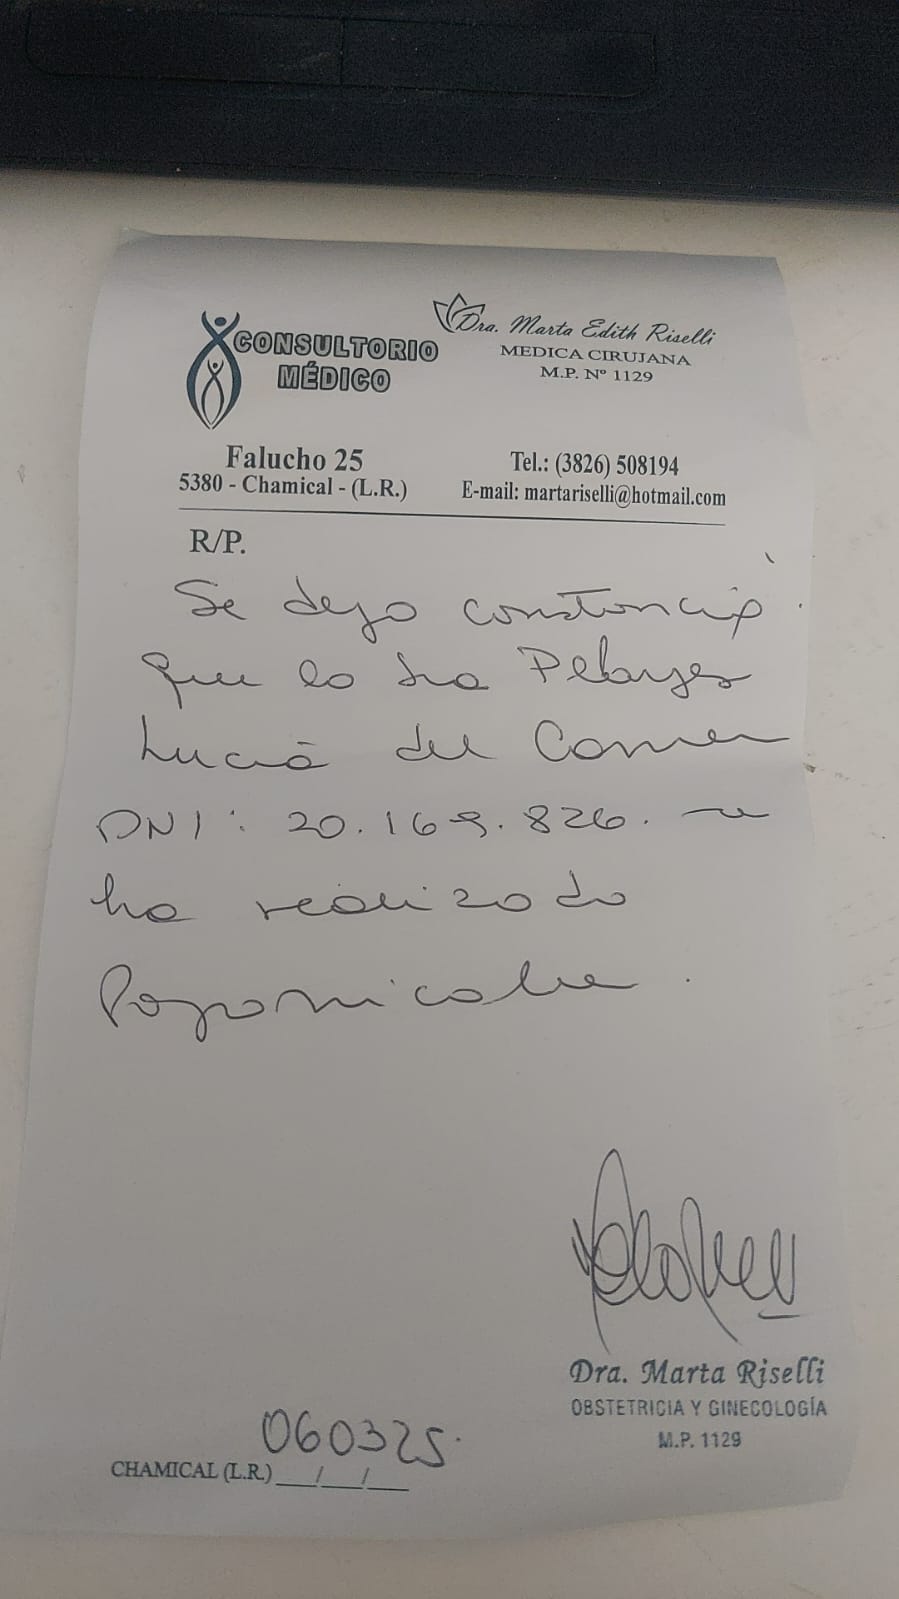 CONSULTORIO
MÉDICO
Dra. Marta Edith Riselli
MEDICA CIRUJANA
M.P. Nº 1129
Falucho 25
5380 - Chamical - (L.R.)
Tel.: (3826) 508194
E-mail: martariselli@hotmail.com
R/P.
Se deja constancia
que la Sra Pelayes
Lucia del Carmen
DNI: 20.169.826. se
ha realizado
Papanicolau.
Dra. Marta Riselli
OBSTETRICIA Y GINECOLOGÍA
M.P. 1129
060325.
CHAMICAL (L.R.) __/__/__